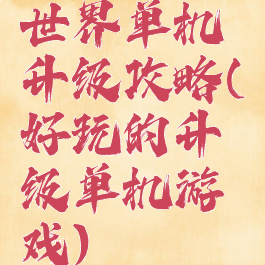 世界单机
升级攻略(
好玩的升
级单机游
戏)